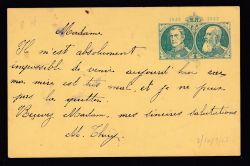 1830 1905
Madame,
Il m'est absolument
impossible de venir aujourd'hui car
ma mère est très mal et je ne peux
pas la quitter.
Recevez Madame, mes sincères salutations
M.